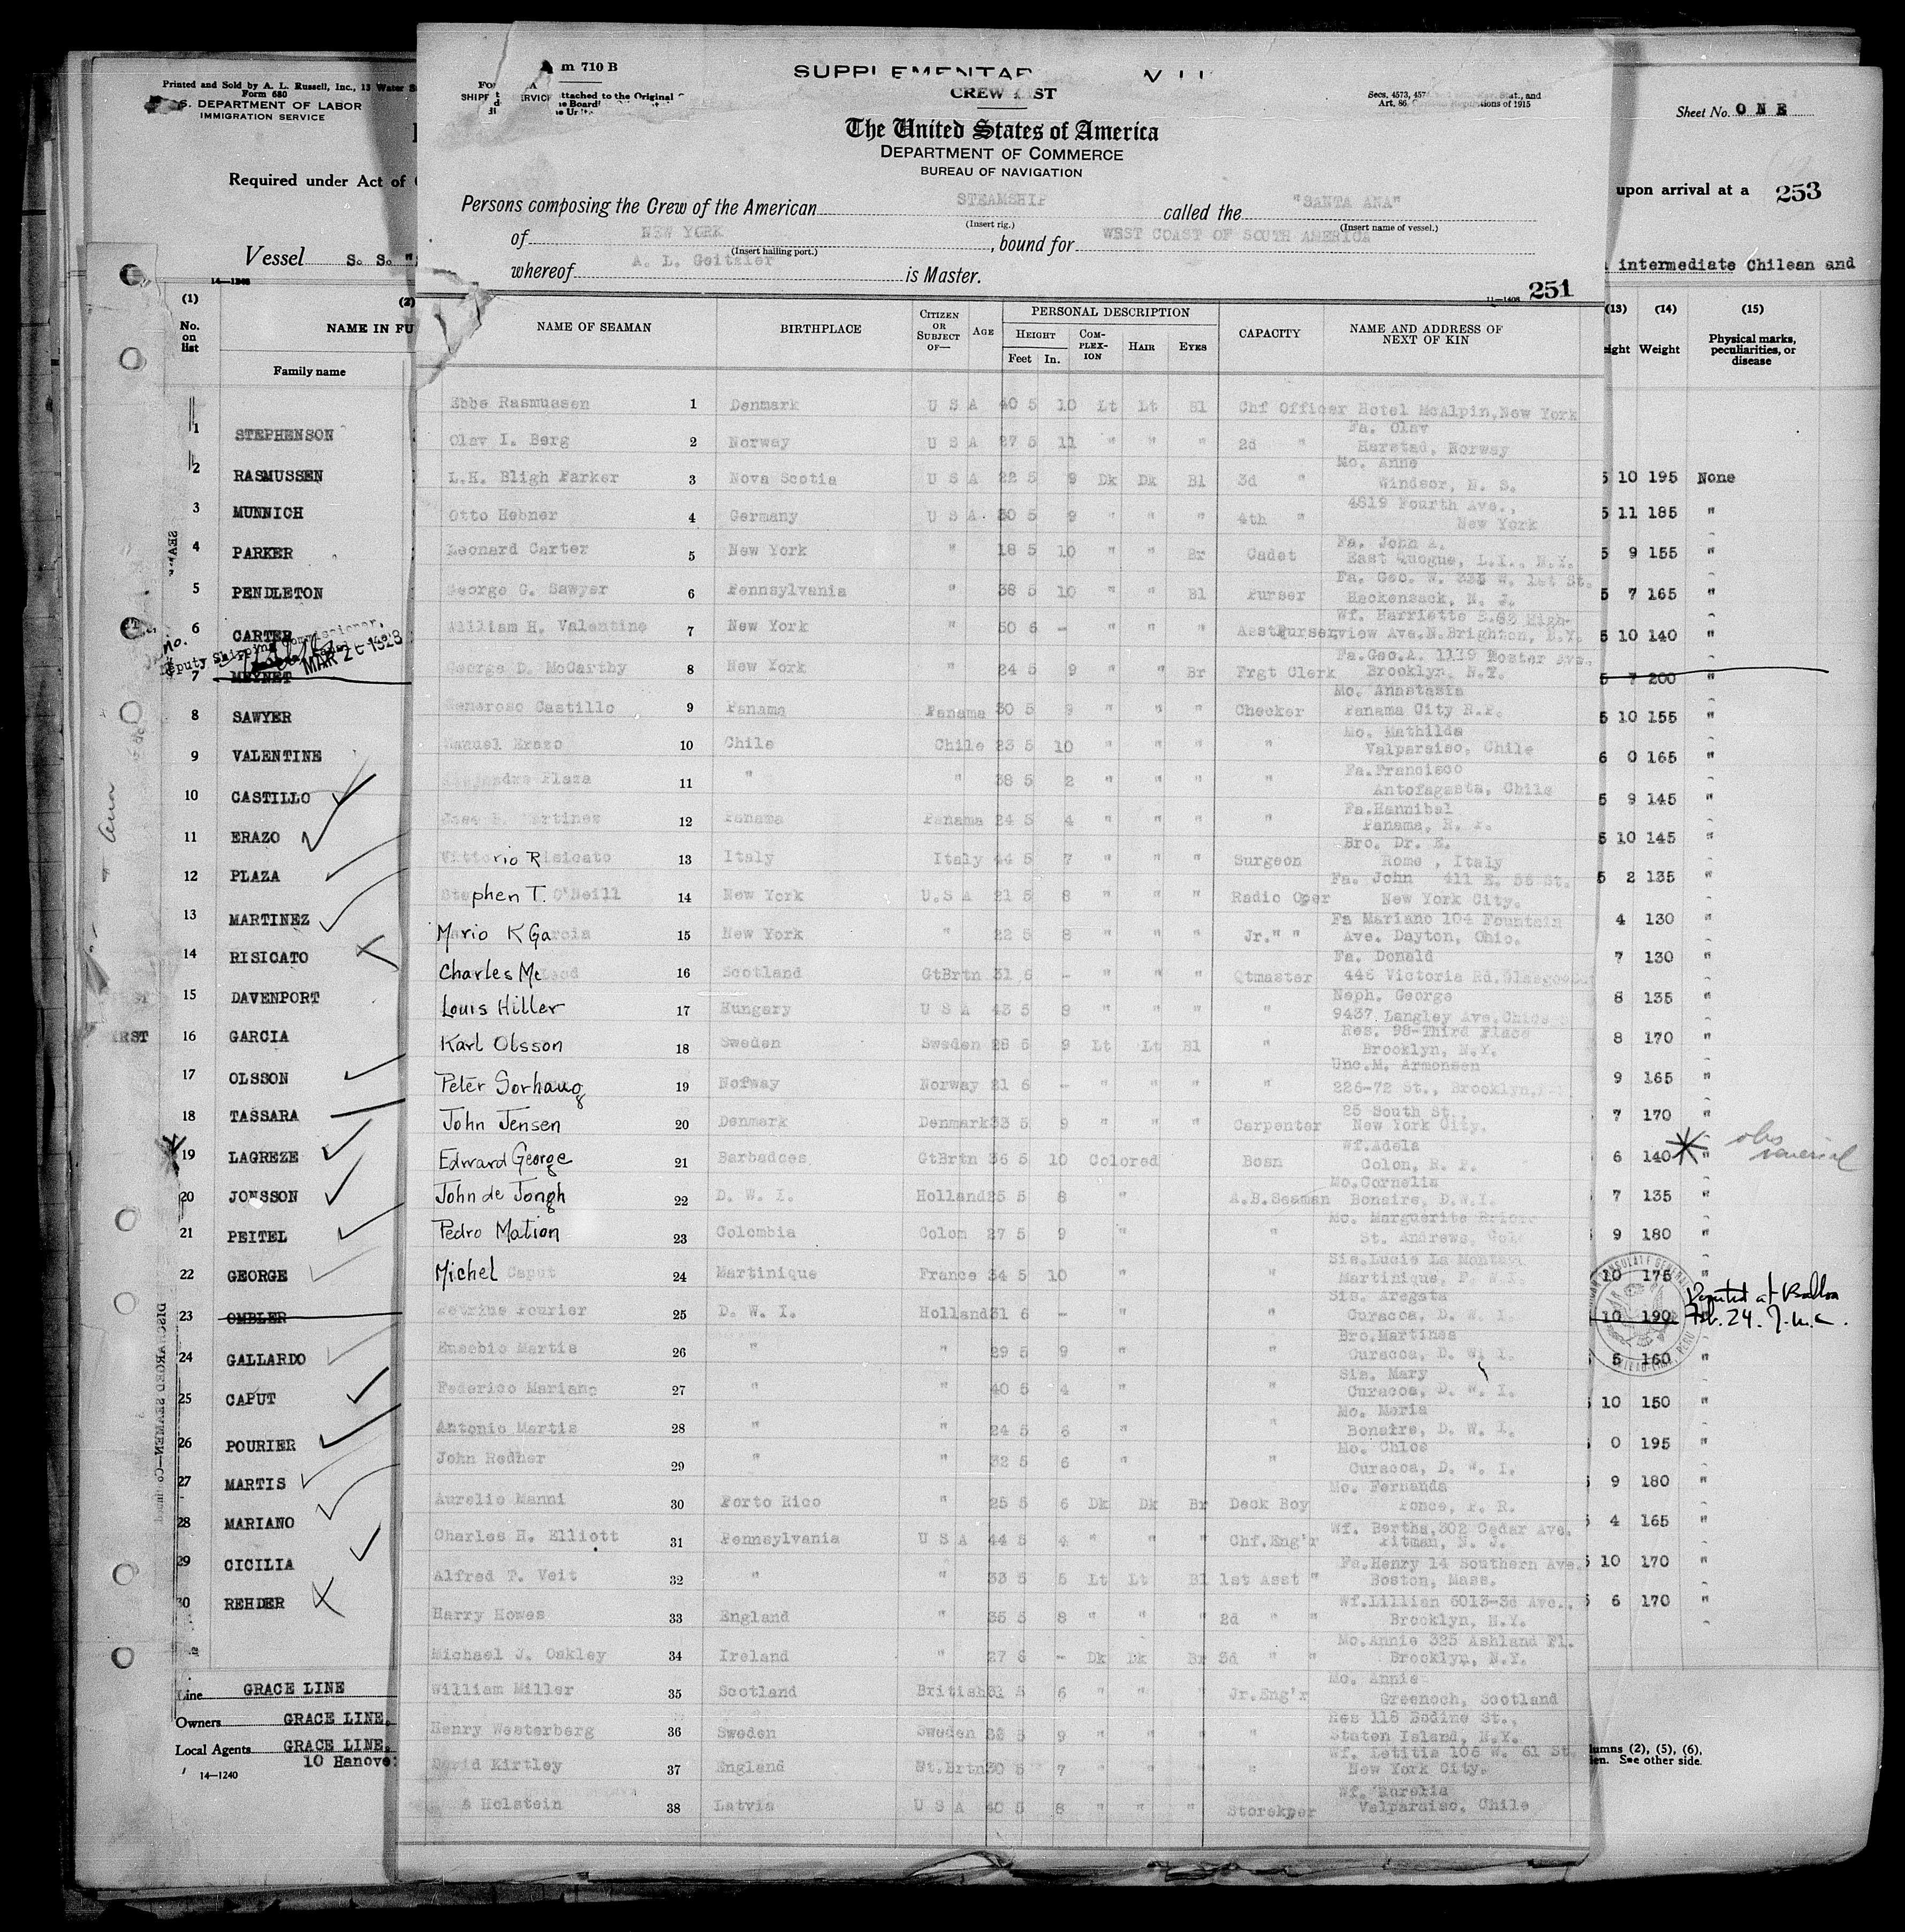 Printed and Sold by A. L. Russell, Inc., 13 Water
Form 680
U.S. DEPARTMENT OF LABOR
IMMIGRATION SERVICE
Required under Act of
Vessel S. S. "
14—1240
(1) (2)
No. on list
NAME IN FU
Family name
1 STEPHENSON
2 RASMUSSEN
3 MUNNICH
4 PARKER
5 PENDLETON
6 CARTER
Deputy Shipping Commissioner,
MAR 2 1928
7 MEYNET
8 SAWYER
9 VALENTINE
10 CASTILLO
11 ERAZO
12 PLAZA
13 MARTINEZ
14 RISICATO
15 DAVENPORT
16 GARCIA
17 OLSSON
18 TASSARA
19 LAGREZE
20 JONSSON
21 PEITEL
22 GEORGE
23 OMBLER
24 GALLARDO
25 CAPUT
26 POURIER
27 MARTIS
28 MARIANO
29 CICILIA
30 REHDER
DISCHARGED SEAMEN—Continued
Line GRACE LINE
Owners GRACE LINE,
Local Agents GRACE LINE,
10 Hanove
14—1240
m 710 B
SUPPLEMENTAR
CREW LIST
SHIPP SERVICE
attached to the Original
Secs. 4573, 457 Stat., and
Art. 86, Regulations of 1915
The United States of America
DEPARTMENT OF COMMERCE
BUREAU OF NAVIGATION
Persons composing the Crew of the American STEAMSHIP called the "SANTA ANA"
(Insert rig.) (Insert name of vessel.)
of NEW YORK, bound for WEST COAST OF SOUTH AMERICA
(Insert hailing port.)
whereof A. L. Geitzler is Master.
11—1408 251
NAME OF SEAMAN BIRTHPLACE CITIZEN OR SUBJECT OF— AGE PERSONAL DESCRIPTION CAPACITY NAME AND ADDRESS OF NEXT OF KIN
HEIGHT COMPLEXION HAIR EYES
Feet In.
Ebbe Rasmussen 1 Denmark U S A 40 5 10 Lt Lt Bl Chf Officer Hotel McAlpin, New York
Olav I. Berg 2 Norway U S A 27 5 11 " " " 2d " Fa. Olav Harstad, Norway
L.K. Bligh Parker 3 Nova Scotia U S A 22 5 9 Dk Dk Bl 3d " Mo. Anne Windsor, N. S.
Otto Hebner 4 Germany U S A. 30 5 9 " " " 4th " 4619 Fourth Ave., New York
Leonard Carter 5 New York " 18 5 10 " " Br Cadet Fa. John A. East Quogue, L.I., N.Y.
George G. Sawyer 6 Pennsylvania " 38 5 10 " " Bl Purser Fa. Geo. W. 335 W. 1st St. Hackensack, N. J.
William H. Valentine 7 New York " 50 6 - " " " Asst Purser Wf. Harriette S. 85 Highview Ave. N. Brighton, N.Y.
George D. McCarthy 8 New York " 24 5 9 " " Br Frgt Clerk Fa. Geo. A. 1119 Foster Ave. Brooklyn, N.Y.
Generoso Castillo 9 Panama Panama 30 5 9 " " " Checker Mo. Anastasia Panama City R.P.
Manuel Erazo 10 Chile Chile 23 5 10 " " " " Mo. Mathilda Valparaiso, Chile
Plaza 11 " " 38 5 2 " " " " Fa. Francisco Antofagasta, Chile
Jose B. Martinez 12 Panama Panama 24 5 4 " " " " Fa. Hannibal Panama, R. P.
Vittorio Risicato 13 Italy Italy 44 5 7 " " " Surgeon Bro. Dr. E. Rome, Italy
Stephen T. O'Neill 14 New York U.S A 21 5 8 " " " Radio Oper Fa. John 411 E. 56 St. New York City.
Mario K Garcia 15 New York " 22 5 8 " " " Jr. " " Fa Mariano 104 Fountain Ave. Dayton, Ohio.
Charles McLeod 16 Scotland GtBrtn 31 6 - " " " Qtmaster Fa. Donald 446 Victoria Rd. Glasgow
Louis Hiller 17 Hungary U S A 43 5 8 " " " " Neph. George 9437 Langley Ave. Chicago
Karl Olsson 18 Sweden Sweden 25 5 9 Lt Lt Bl " Res. 98-Third Place Brooklyn, N.Y.
Peter Sorhaug 19 Norway Norway 21 6 - " " " " Unc. M. Armonsen 226-72 St., Brooklyn,
John Jensen 20 Denmark Denmark 33 5 9 " " " Carpenter 25 South St., New York City.
Edward George 21 Barbadoes GtBrtn 36 5 10 Colored Bosn Wf. Adela Colon, R. P.
John de Jongh 22 D. W. I. Holland 25 5 8 " A.B. Seaman Mo. Cornelia Bonaire, D.W.I.
Pedro Mation 23 Colombia Colom 27 5 9 " " Mo. Marguerite St. Andrews,
Michel Caput 24 Martinique France 34 5 10 " " Sis. Lucie La Montagne Martinique, F. W. I.
Petrius Pourier 25 D. W. I. Holland 31 6 - " " Sis. Aregata Curacoa, D. W. I.
Eusebio Martis 26 " " 29 5 9 " " Bro. Martines Curacoa, D. W. I.
Federico Mariano 27 " " 40 5 4 " " Sis. Mary Curacoa, D. W. I.
Antonio Martis 28 " " 24 5 6 " " Mo. Maria Bonaire, D. W. I.
John Redher 29 " " 32 5 6 " " Mo. Chloe Curacoa, D. W. I.
Aurelio Manni 30 Porto Rico " 25 5 6 Dk Dk Br Deck Boy Mo. Fernanda Ponce, P. R.
Charles H. Elliott 31 Pennsylvania U S A 44 5 4 " " " Chf. Eng'r Wf. Bertha, 302 Cedar Ave. Pitman, N. J.
Alfred T. Veit 32 " " 33 5 5 Lt Lt Bl 1st Asst " Fa. Henry 14 Southern Ave. Boston, Mass.
Harry Howes 33 England " 35 5 8 " " " 2d " " Wf. Lillian 6013-3d Ave., Brooklyn, N.Y.
Michael J. Oakley 34 Ireland " 27 6 - Dk Dk Br 3d " " Mo. Annie 325 Ashland Pl. Brooklyn, N.Y.
William Miller 35 Scotland British 31 5 6 " " " Jr. Eng'r Mo. Annie Greenoch, Scotland
Henry Westerberg 36 Sweden Sweden 33 5 9 " " " " Res 118 Bodine St., Staten Island, N.Y.
David Kirtley 37 England Gt.Brtn 30 5 7 " " " " Wf. Letitia 106 W. 61 St. New York City.
Holstein 38 Latvia U S A 40 5 8 " " " Storekper Wf. Aurelia Valparaiso, Chile
Sheet No. ONE
upon arrival at a 253
intermediate Chilean and
(13) (14) (15)
eight Weight Physical marks, peculiarities, or disease
5 10 195 None
5 11 185 "
5 9 155 "
5 7 165 "
5 10 140 "
5 7 200 "
5 10 155 "
6 0 165 "
5 9 145 "
5 10 145 "
5 2 135 "
4 130 "
7 130 "
8 135 "
8 170 "
9 165 "
7 170 "
6 140 " obs venerial
7 135 "
9 180 "
10 175 "
10 190 Deported at Balboa Feb. 24. J.M.C.
5 160 "
10 150 "
0 195 "
9 180 "
5 4 165 "
5 10 170 "
5 6 170 "
lumns (2), (5), (6),
en. See other side.